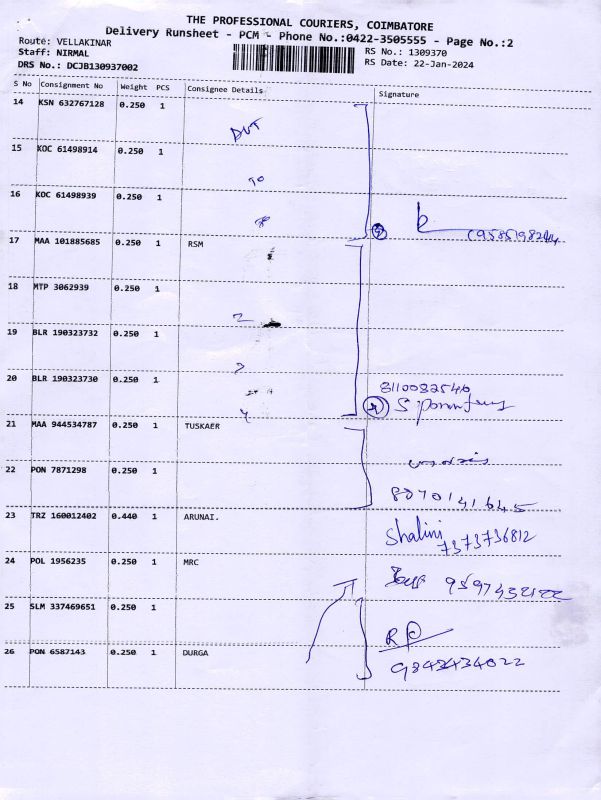 THE PROFESSIONAL COURIERS, COIMBATORE
Delivery Runsheet - PCM - Phone No.:0422-3505555 - Page No.:2
Route: VELLAKINAR
RS No.: 1309370
Staff: NIRMAL
RS Date: 22-Jan-2024
DRS No.: DCJB130937002
S No Consignment No Weight PCS Consignee Details Signature
14 KSN 632767128 0.250 1
15 KOC 61498914 0.250 1
16 KOC 61498939 0.250 1
17 MAA 101885685 0.250 1 RSM
18 MTP 3062939 0.250 1
19 BLR 190323732 0.250 1
20 BLR 190323730 0.250 1
8110082540
21 MAA 944534787 0.250 1 TUSKAER
22 PON 7871298 0.250 1
8070141645
23 TRZ 160012402 0.440 1 ARUNAI.
Shalini
7373736812
24 POL 1956235 0.250 1 MRC
9597432122
25 SLM 337469651 0.250 1
26 PON 6587143 0.250 1 DURGA
9843434022